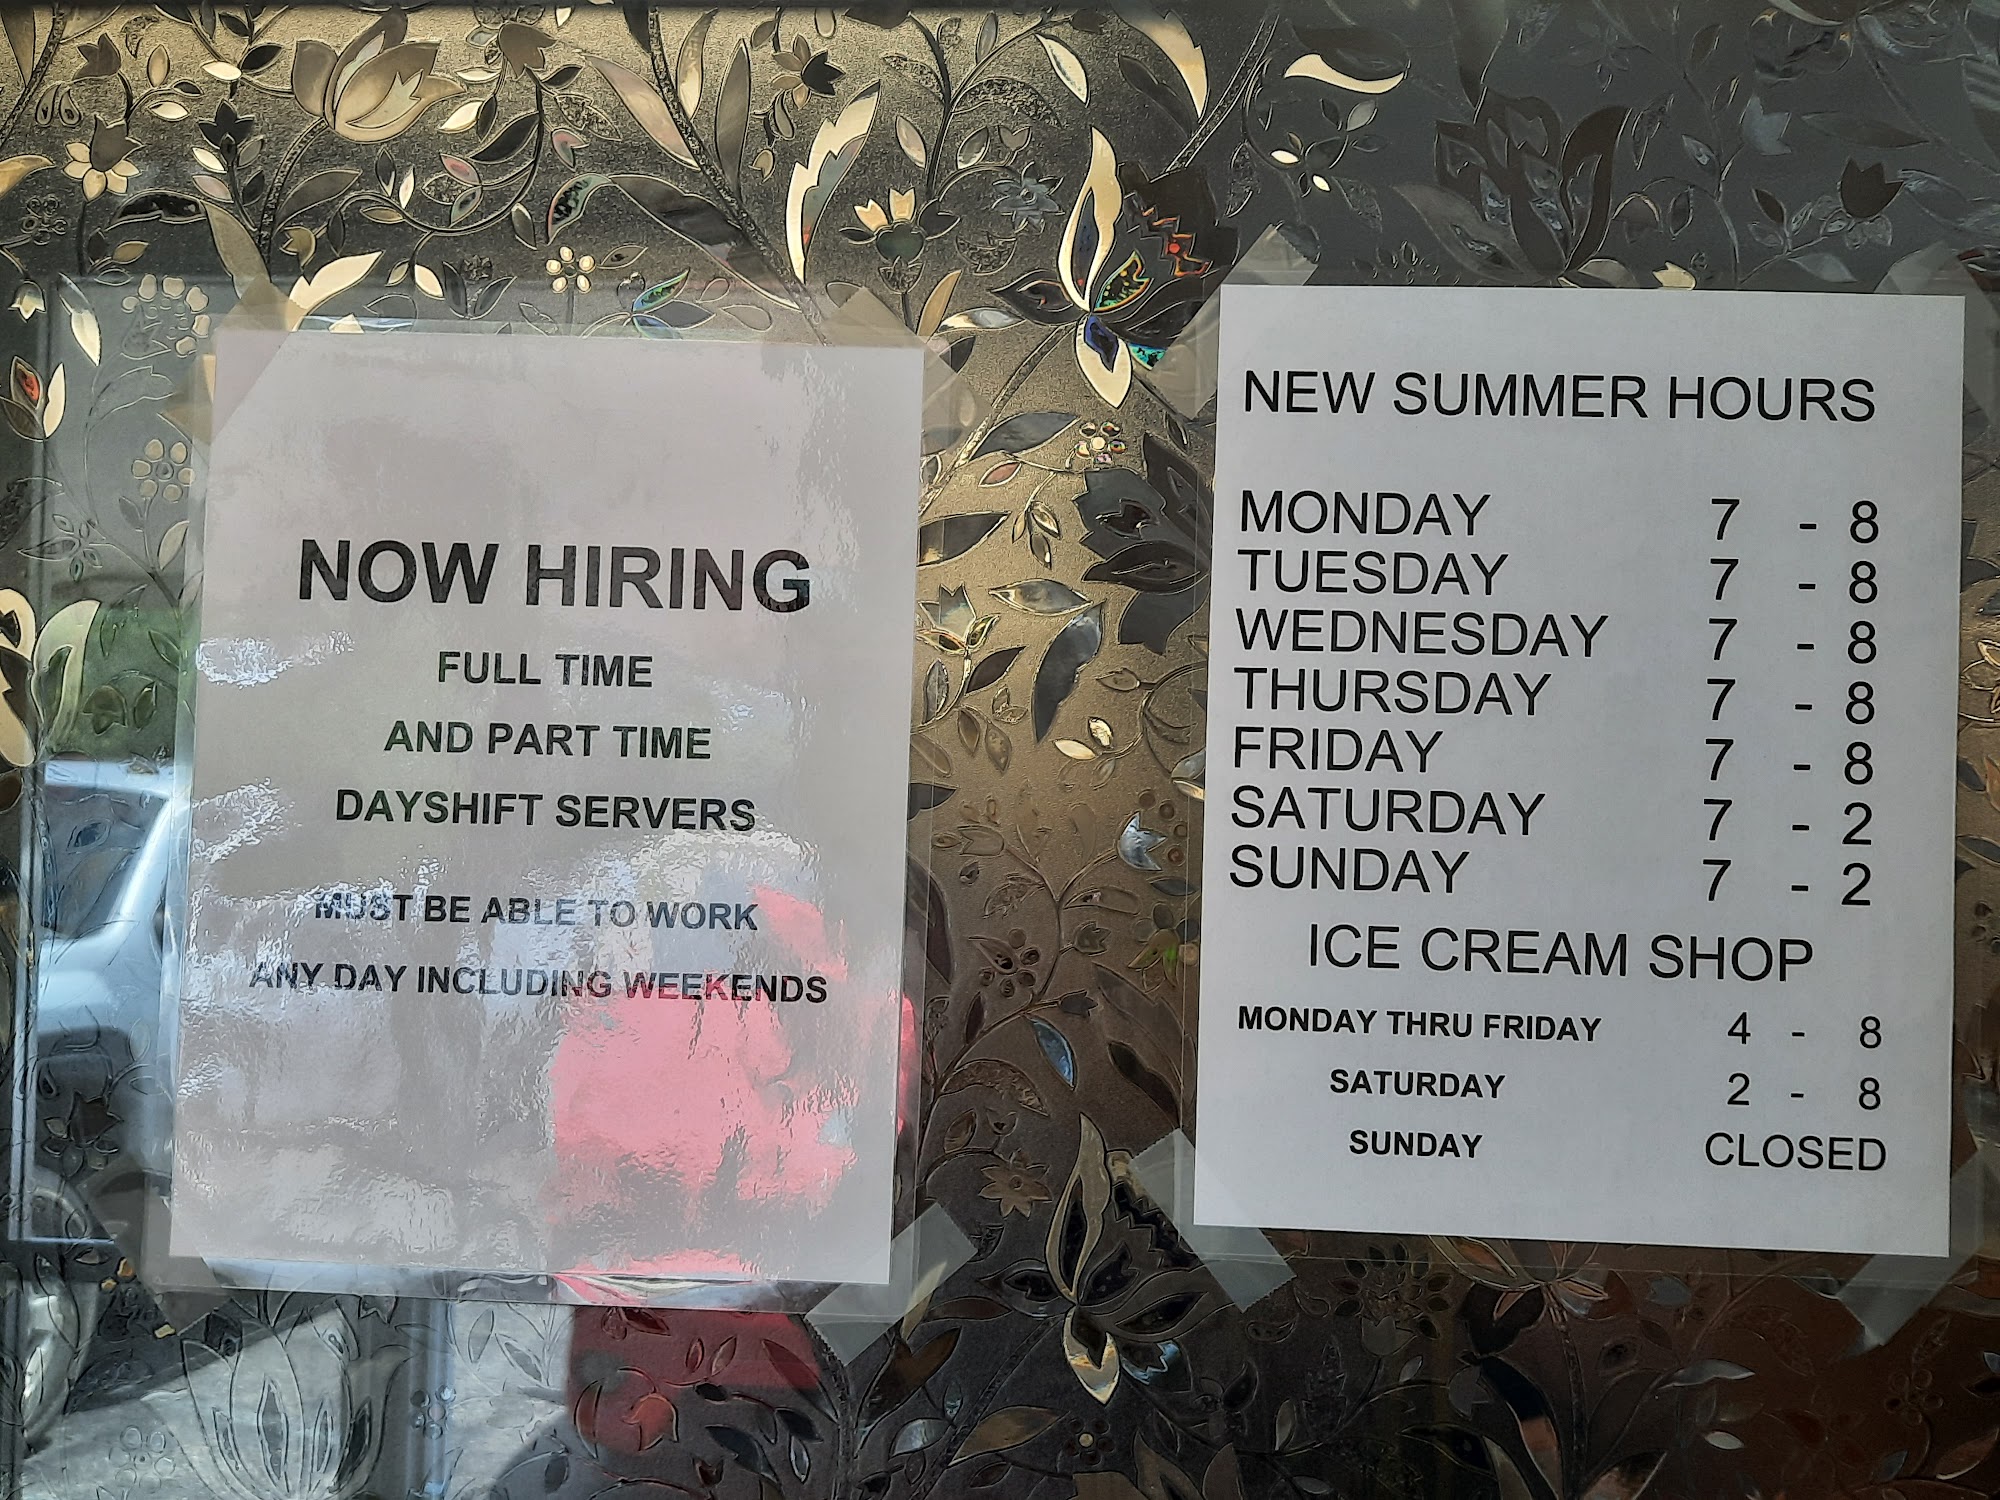 NOW HIRING
FULL TIME
AND PART TIME
DAYSHIFT SERVERS
MUST BE ABLE TO WORK
ANY DAY INCLUDING WEEKENDS
NEW SUMMER HOURS
MONDAY 7 - 8
TUESDAY 7 - 8
WEDNESDAY 7 - 8
THURSDAY 7 - 8
FRIDAY 7 - 8
SATURDAY 7 - 2
SUNDAY 7 - 2
ICE CREAM SHOP
MONDAY THRU FRIDAY 4 - 8
SATURDAY 2 - 8
SUNDAY CLOSED